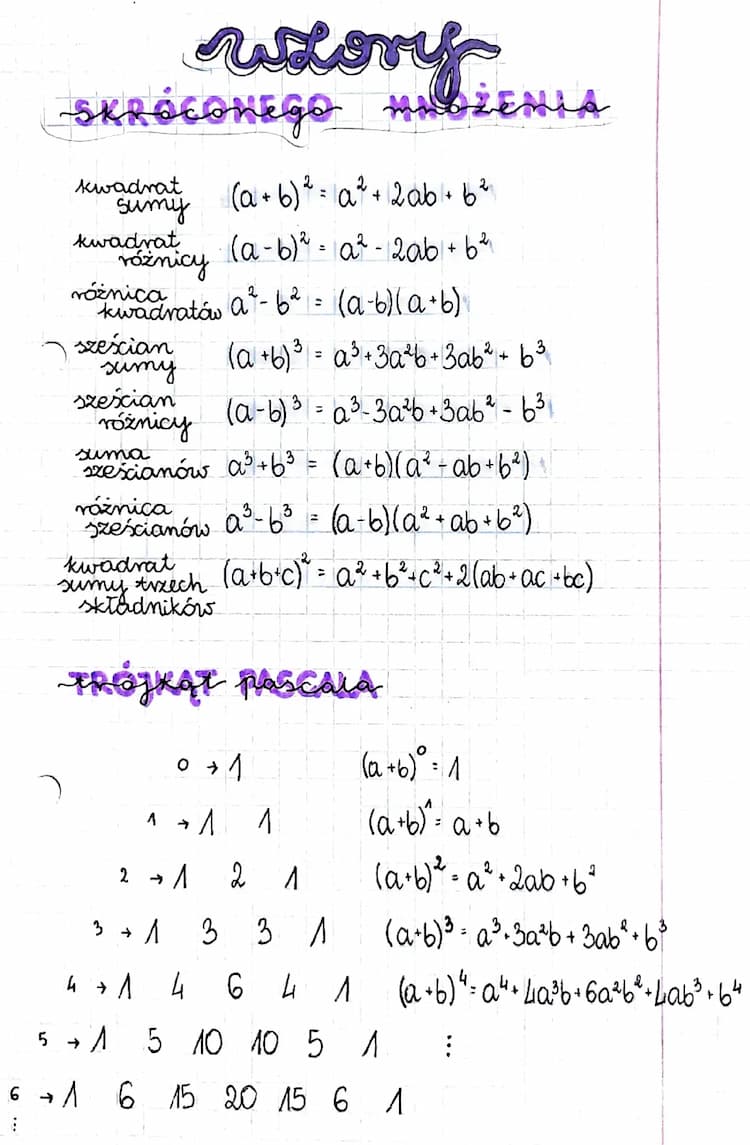 wzory
SKRÓCONEGO MNOŻENIA
kwadrat
sumy (a+b)² = a² + 2ab + b²
kwadrat
różnicy (a-b)² = a² - 2ab + b²
różnica
kwadratów a² - b² = (a-b)(a+b)
sześcian
sumy (a+b)³ = a³+3a²b+3ab²+ b³
sześcian
różnicy (a-b)³ = a³-3a²b+3ab² - b³
suma
sześcianów a³+b³ = (a+b)(a² - ab+b²)
różnica
sześcianów a³-b³ = (a-b)(a²+ab+b²)
kwadrat
sumy trzech (a+b+c)² = a²+b²+c²+2(ab+ac+bc)
składników
TRÓJKĄT PASCALA
0 → 1 (a+b)⁰ = 1
1 → 1 1 (a+b)¹ = a+b
2 → 1 2 1 (a+b)² = a²+2ab+b²
3 → 1 3 3 1 (a+b)³ = a³+3a²b+3ab²+b³
4 → 1 4 6 4 1 (a+b)⁴ = a⁴+4a³b+6a²b²+4ab³+b⁴
5 → 1 5 10 10 5 1 ⋮
6 → 1 6 15 20 15 6 1
⋮